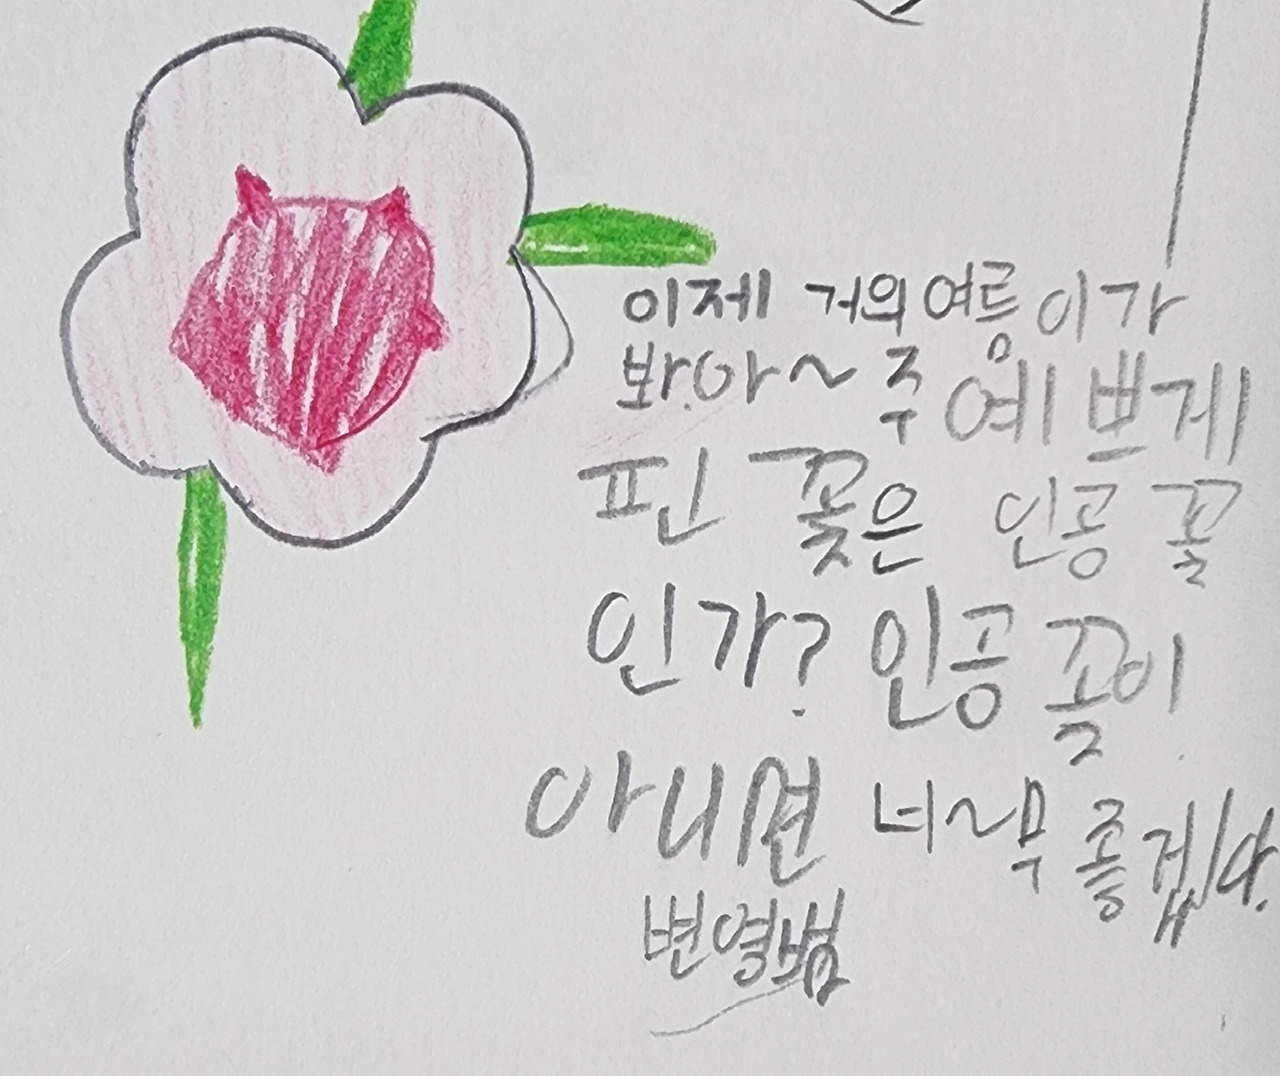 이제 거의 여릉이가
봐.아~ 주 예쁘게
핀 꽃은 인공 꽃
인가? 인공 꽃이
아니면 너~무 좋겠다.
변열쌤